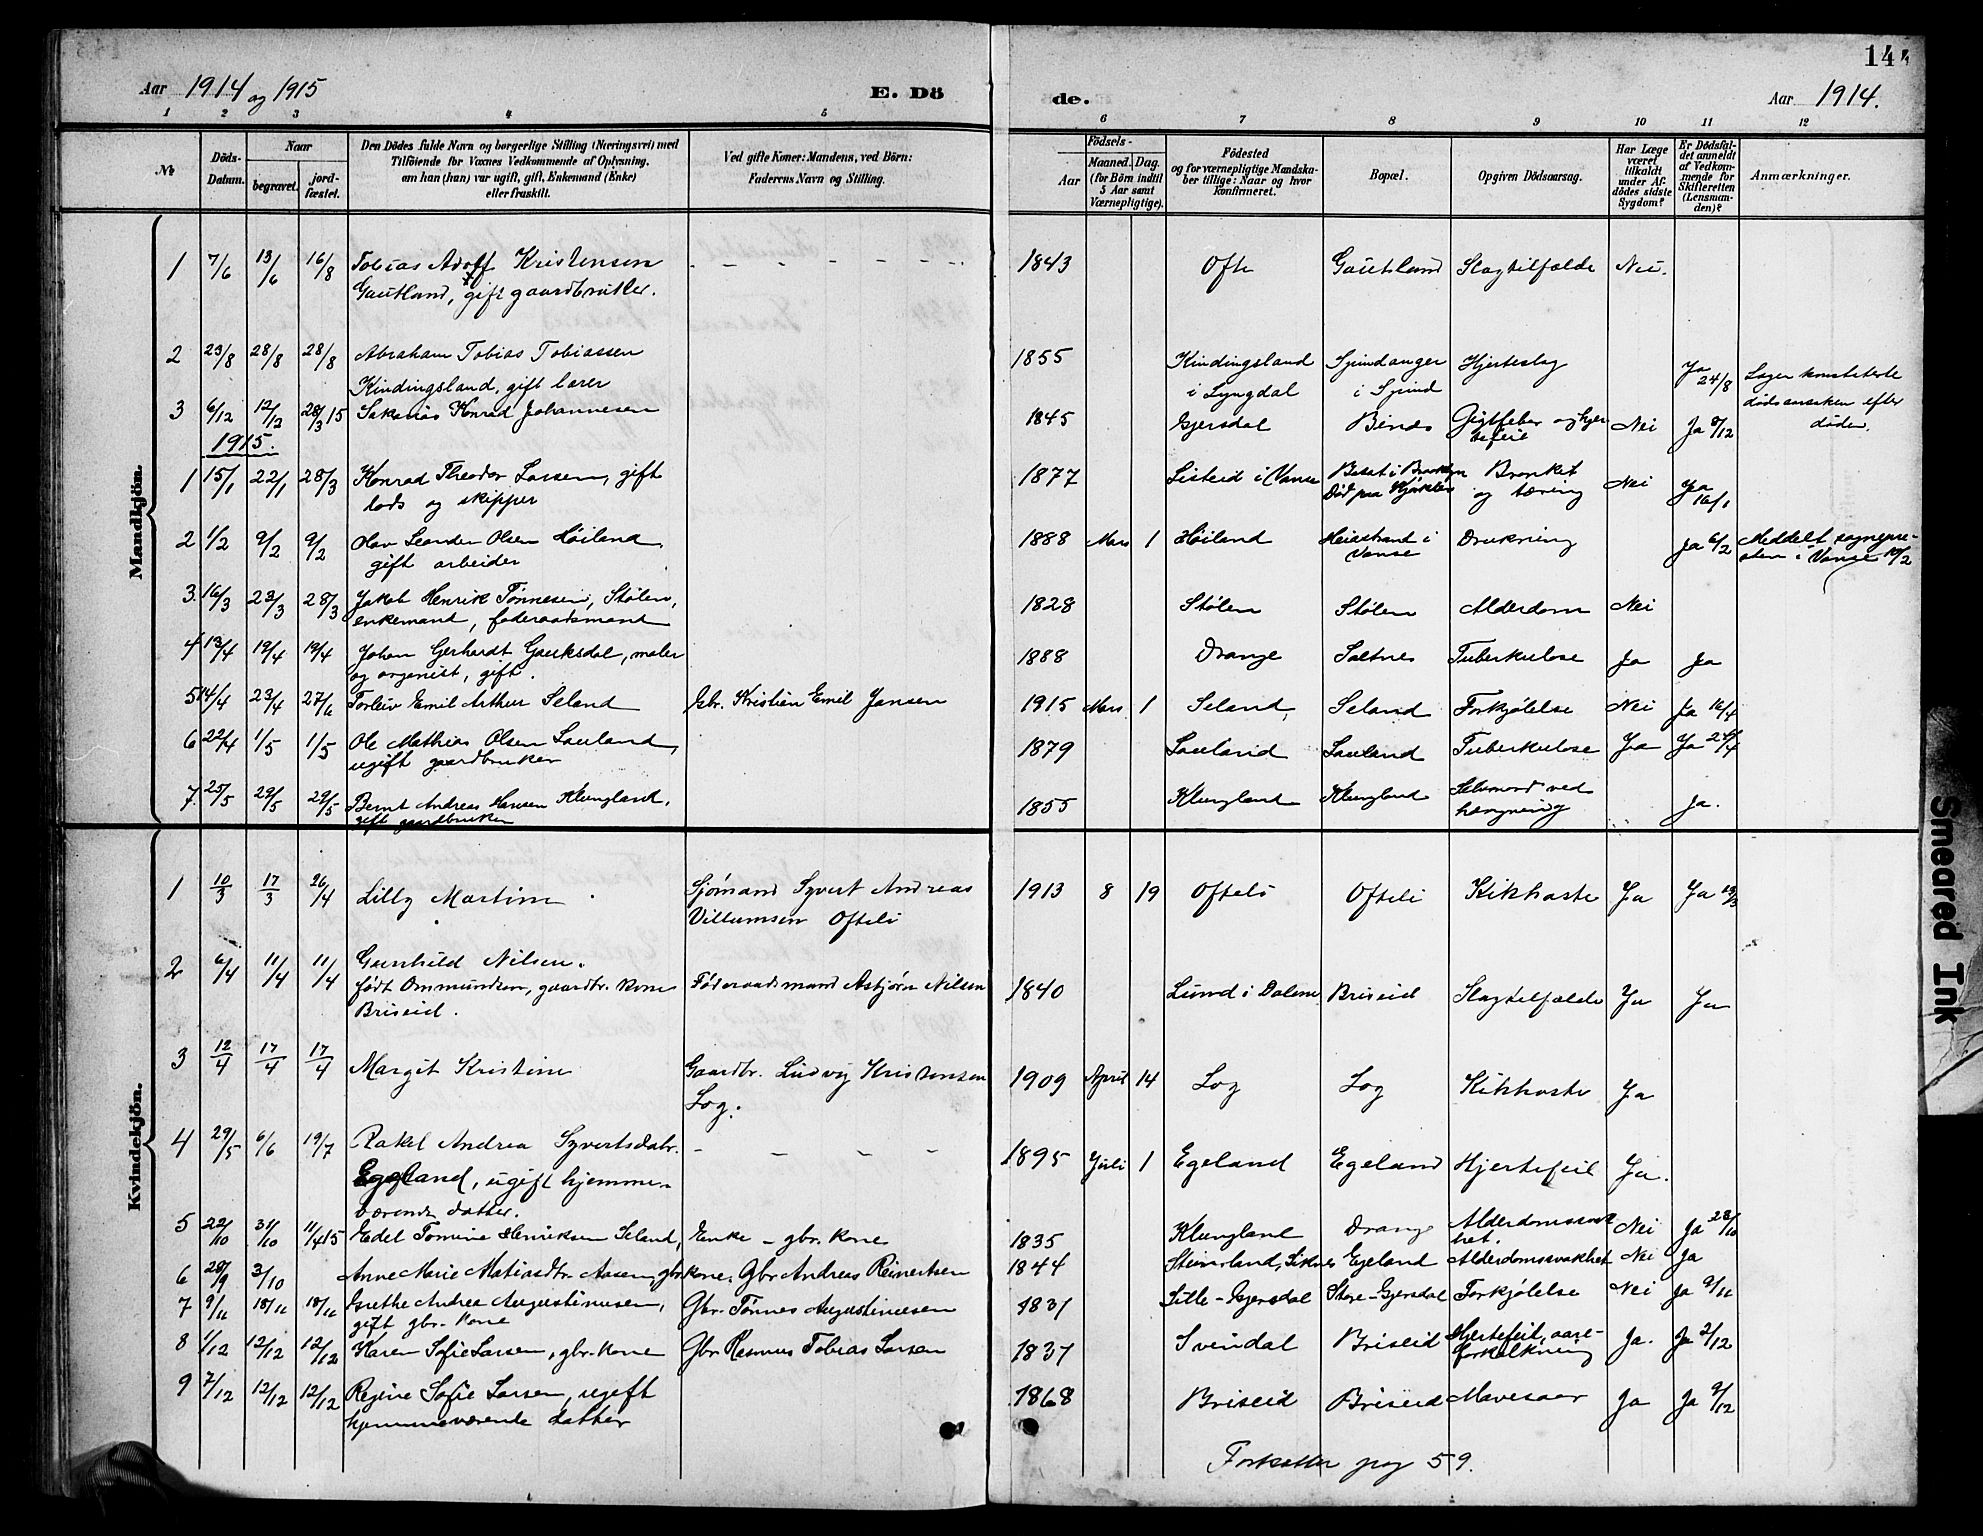 Aar 1914 og 1915 E. Dö
de. Aar 1914. 144
1 2 3 4 5
6 7 8 9 10 11 12
№
Döds-Datum.
Naar
begravet.
jord-fæstet.
Den Dödes fulde Navn og borgerlige Stilling (Næringsvei) med
Tilföiende for Voxnes Vedkommende af Oplysning,
om han (hun) var ugift, gift, Enkemand (Enke)
eller fraskilt.
Ved gifte Koner: Mandens, ved Börn:
Faderens Navn og Stilling.
Födsels-
Aar
Maaned. Dag.
(for Börn indtil
5 Aar samt
Værnepligtige).
Födested
og for værnepligtige Mandska-
ber tillige: Naar og hvor
konfirmeret.
Bopæl.
Opgiven Dödsaarsag.
Har Læge
været
tilkaldt
under Af-
dödes sidste
Sygdom?
Er Dödsfal-
det anmeldt
af Vedkom-
mende for
Skifteretten
(Lensman-
den)?
Anmærkninger.
Mandkjön.
1 7/6 13/6 16/8 Tobias Adolf Kristensen - - - - - - - 1843 Ofte Gautland Slagtilfælde Nei.
Gautland, gift gaardbruker.
2 23/8 28/8 28/8 Abraham Tobias Tobiassen 1855 Kindingsland Spindanger Hjerteslag Ja 24/8 Læger konstaterte
Kindingsland, gift lærer i Lyngdal i Spind dødsaarsaken efter
døden.
3 6/12 12/12 28/3 15 Sakarias Konrad Johannesen 1845 Gjersdal Gigtfeber og hjer Nei Ja 8/12
tefeil
1915.
1 15/1 22/1 28/3 Konrad Theodor Larsen, gift 1877 Listeid i Vanse Bosat i Brooklyn Bronket Nei Ja
lods og skipper Død paa og tæring 16/1
2 1/2 9/2 9/2 Olav Leander Olsen Høiland, 1888 Mars 1 Høiland i Drukning Ja 6/2 Meddelt sognepre-
gift arbeider Vanse sten i Vanse 10/2
3. 16/3 23/3 28/3 Jakob Henrik Tønnesen, Stølen, 1828 Stølen Stølen Alderdom Nei
enkemand, føderaadsmand
4 13/4 19/4 19/4 Johan Gerhardt Gauksdal, maler 1888 Drange Saltnes Tuberkulose Ja Ja
og organist, gift.
5 14/4 23/4 27/6 Torleiv Emil Arthur Seland Gbr. Kristian Emil Jansen 1915 Mars 1 Seland, Seland Forkjølelse Nei Ja 16/4
6 22/4 1/5 1/5 Ole Mathias Olsen Lauland, 1879 Lauland Lauland Tuberkulose Ja Ja 24/4
ugift gaardbruker
7. 25/5 29/5 29/5 Bernt Andreas Hansen Klungland, 1855 Klungland Klungland Selvmord ved Ja.
gift gaardbruker hængning
Kvindekjön.
1 10/3 17/3 26/4 Lilly Martine Sjømand Syvert Andreas 1913 8 19 Ofteli Ofteli Kikhoste Ja Ja 13/3
Villumsen Ofteli
2 6/4 11/4 11/4 Gunhild Nilsen.
født Ommundsen, gaardbr. kone Føderaadsmand Asbjørn Nilsen 1840 Lund i Dalene Briseid Slagtilfælde Ja Ja
Briseid.
3 12/4 17/4 17/4 Margit Kristine Gaardbr. Ludvig Kristensen 1909 April 14 Log Log Kikhoste Ja
Log.
4 29/5 6/6 19/7 Rakel Andrea Syvertsdatr. - - - - 1895 Juli 1 Egeland Egeland Hjertefeil Ja.
Egeland, ugift hjemme-
værende datter.
5 22/10 31/10 11/4 15 Edel Tomine Henriksen Seland, Enke - gbr. kone 1835 Klungland Drange Alderdomssvak Nei Ja 28/10
het.
6 28/9 3/10 Anne Marie Matiasdtr. Aasen, gbr kone. Gbr Andreas Reinertsen 1844 Egeland Alderdomssvakhet Nei Ja
7 9/11 18/11 18/11 Grethe Andrea Augustinusen, Gbr. Tønnes Augustinusen 1831 Lille-Gjersdal Store-Gjersdal Forkjølelse Nei Ja 9/11
gift gbr.-kone
8 1/12 12/12 12/12 Karen Sofie Larsen, gbr.-kone Gbr. Rasmus Tobias Larsen 1837 Svindal Briseid Hjertefeil, aare- Ja. Ja 2/12
forkalkning
9 7/12 12/12 12/12 Regine Sofie Larsen, ugift 1868 Briseid Briseid Mavesaar Ja Ja 9/12
hjemmeværende datter
Forsætter pag 59.
Smeared Ink